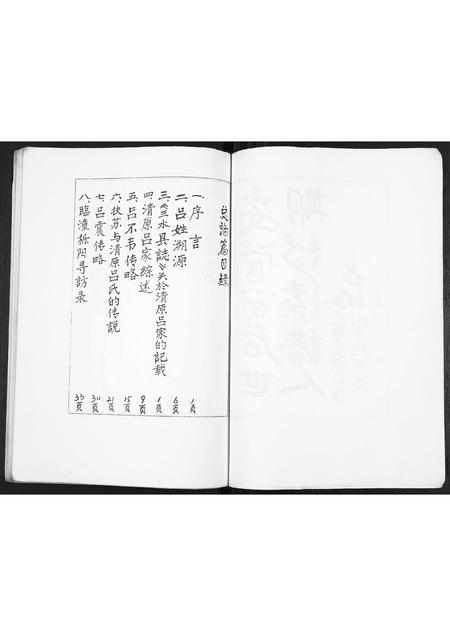 总论篇目録
一、序言 1页
二、吕姓溯源 6页
三、《三水县誌》关於清原吕家的記载 1页
四、清原吕家综述 9页
五、吕不韦传略 15页
六、扶苏与清原吕氏的传説 21页
七、吕震传略 30页
八、臨潼栎阳寻訪录 33页